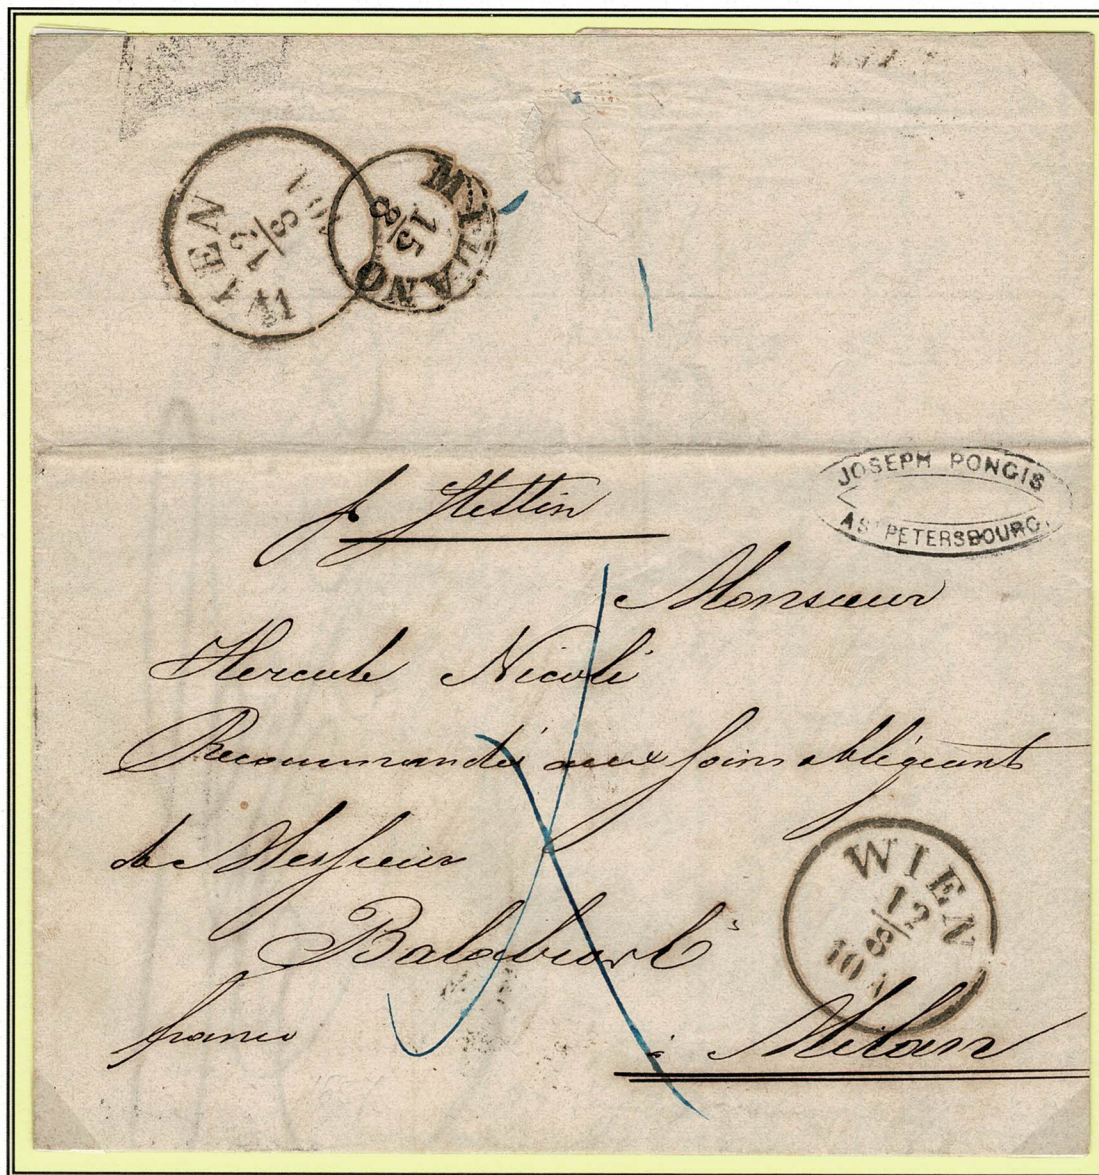 WIEN
12/8
10 A
MILANO
15/8
JOSEPH PONGIS
A ST PETERSBOURG.
p Stettin
Monsieur
Hercule Nicoli
Recommandée aux soins obligeants
de Messieurs
franco
WIEN
12/8
10 A
à Milan